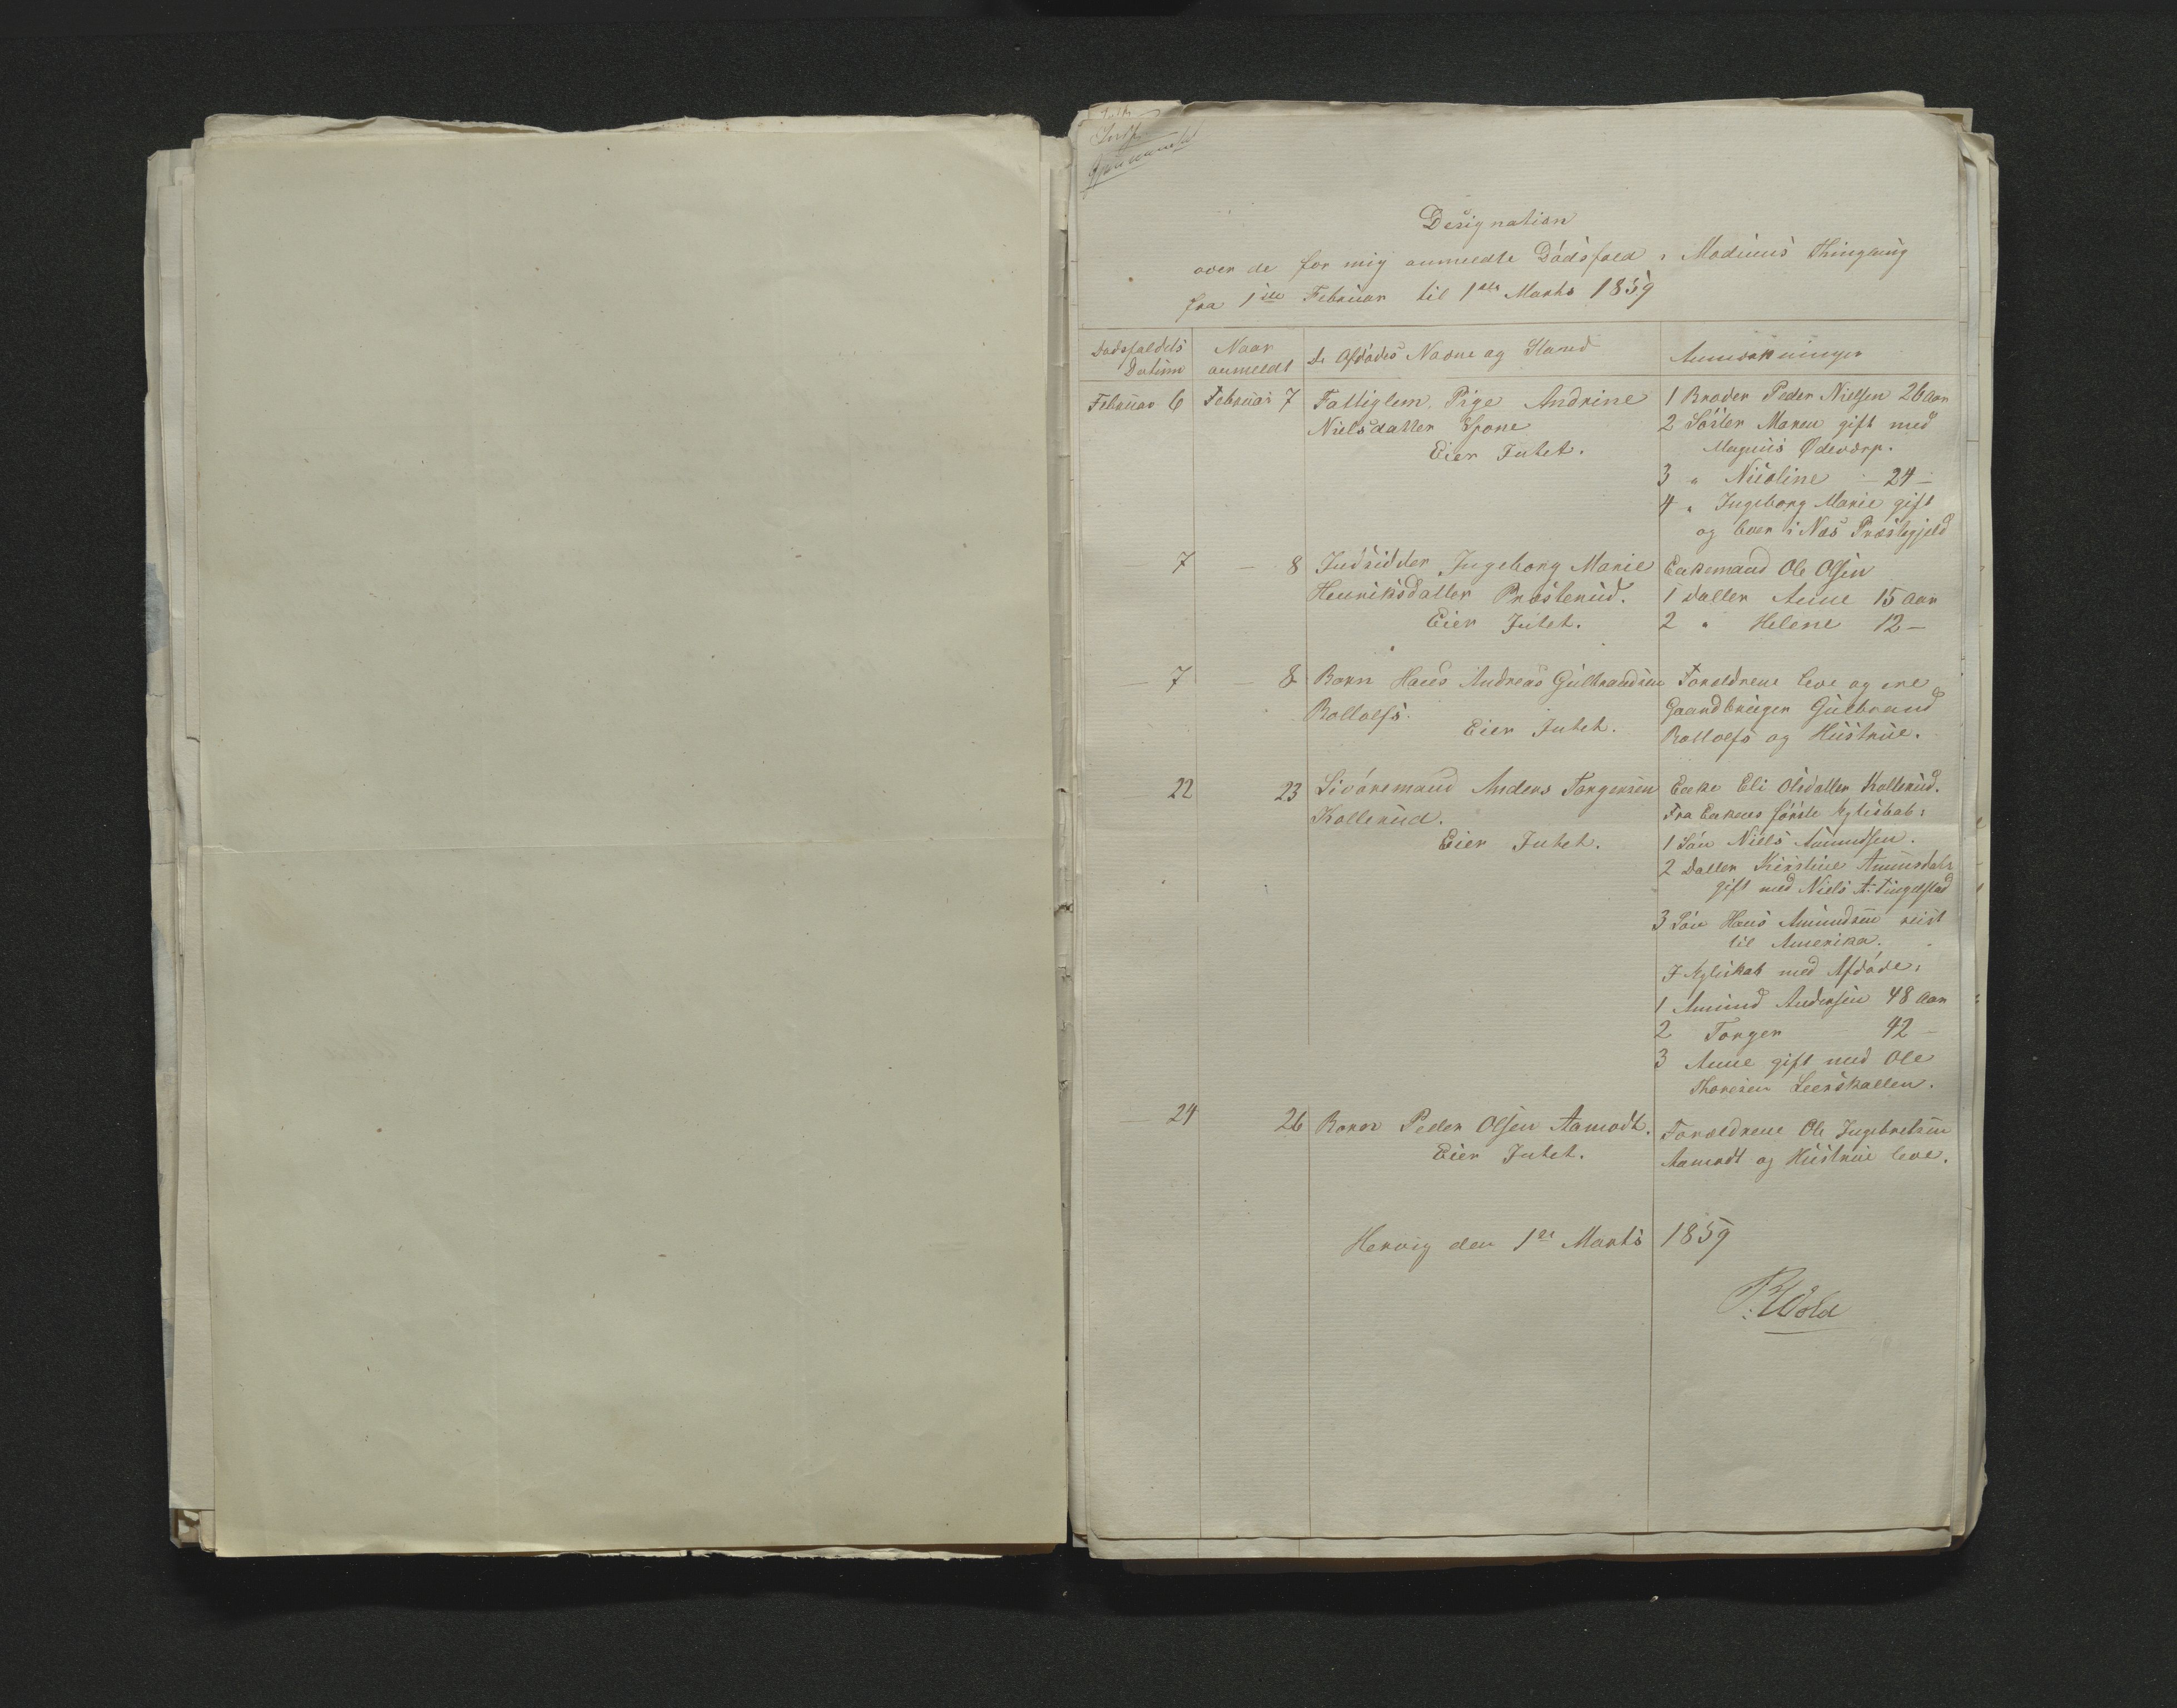 Designation
over de for mig anmeldte Dödsfald i Modums Thinglaug
fra 1ste Februar til 1ste Marts 1859
Dødsfaldets Datum
Naar anmeldt
De Afdödes Navne og Stand
Anmærkninger
Februar 6 Februar 7 Fattiglem. Pige Andrine
Nielsdatter Spone
Eier Intet.
1 Broder Peder Nielsen 26 Aar
2 Söster Maren gift med
Magnus Ødeværp.
3 " Nicoline - 24 -
4 " Ingeborg Marie gift
og boer i Næs Præstegjeld
7 - 8 Indsidder Ingeborg Marie
Henriksdatter Præsterud.
Eier Intet.
Enkemand Ole Olsen
1 Datter Anne 15 Aar
2 " Helene 12 -
- 7 - 8 Barn Hans Andreas Gulbrandsen
Bottolfs.
Eier Intet.
Forældrene leve og ere
Gaardbruger Gulbrand
Bottolfs og Hustrue.
22 23 Livöremand Anders Torgersen
Kollerud.
Eier Intet.
Enke Eli Olsdatter Kollerud.
Fra Enkens förste Ægteskab:
1 Sön Niels Amundsen.
2 Datter Kirstine Amunsdatr
gift med Niels A. Tingelstad
3 Sön Hans Amundsen reist
til Amerika.
I Ægteskab med Afdöde:
1 Amund Andersen 48 Aar
2 Torger 42 -
3 Anne gift med Ole
Thoresen Leerskallen.
- 24 26 Barn Peder Olsen Aamodt.
Eier Intet.
Forældrene Ole Ingebretsen
Aamodt og Hustrue leve.
Hervig den 1ste Marts 1859
P. Wold